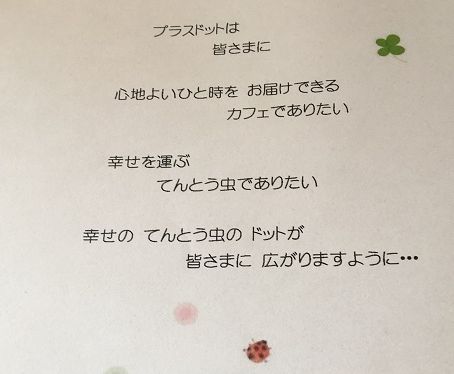 プラスドットは
皆さまに
心地よいひと時を お届けできる
カフェでありたい
幸せを運ぶ
てんとう虫でありたい
幸せの てんとう虫の ドットが
皆さまに 広がりますように・・・